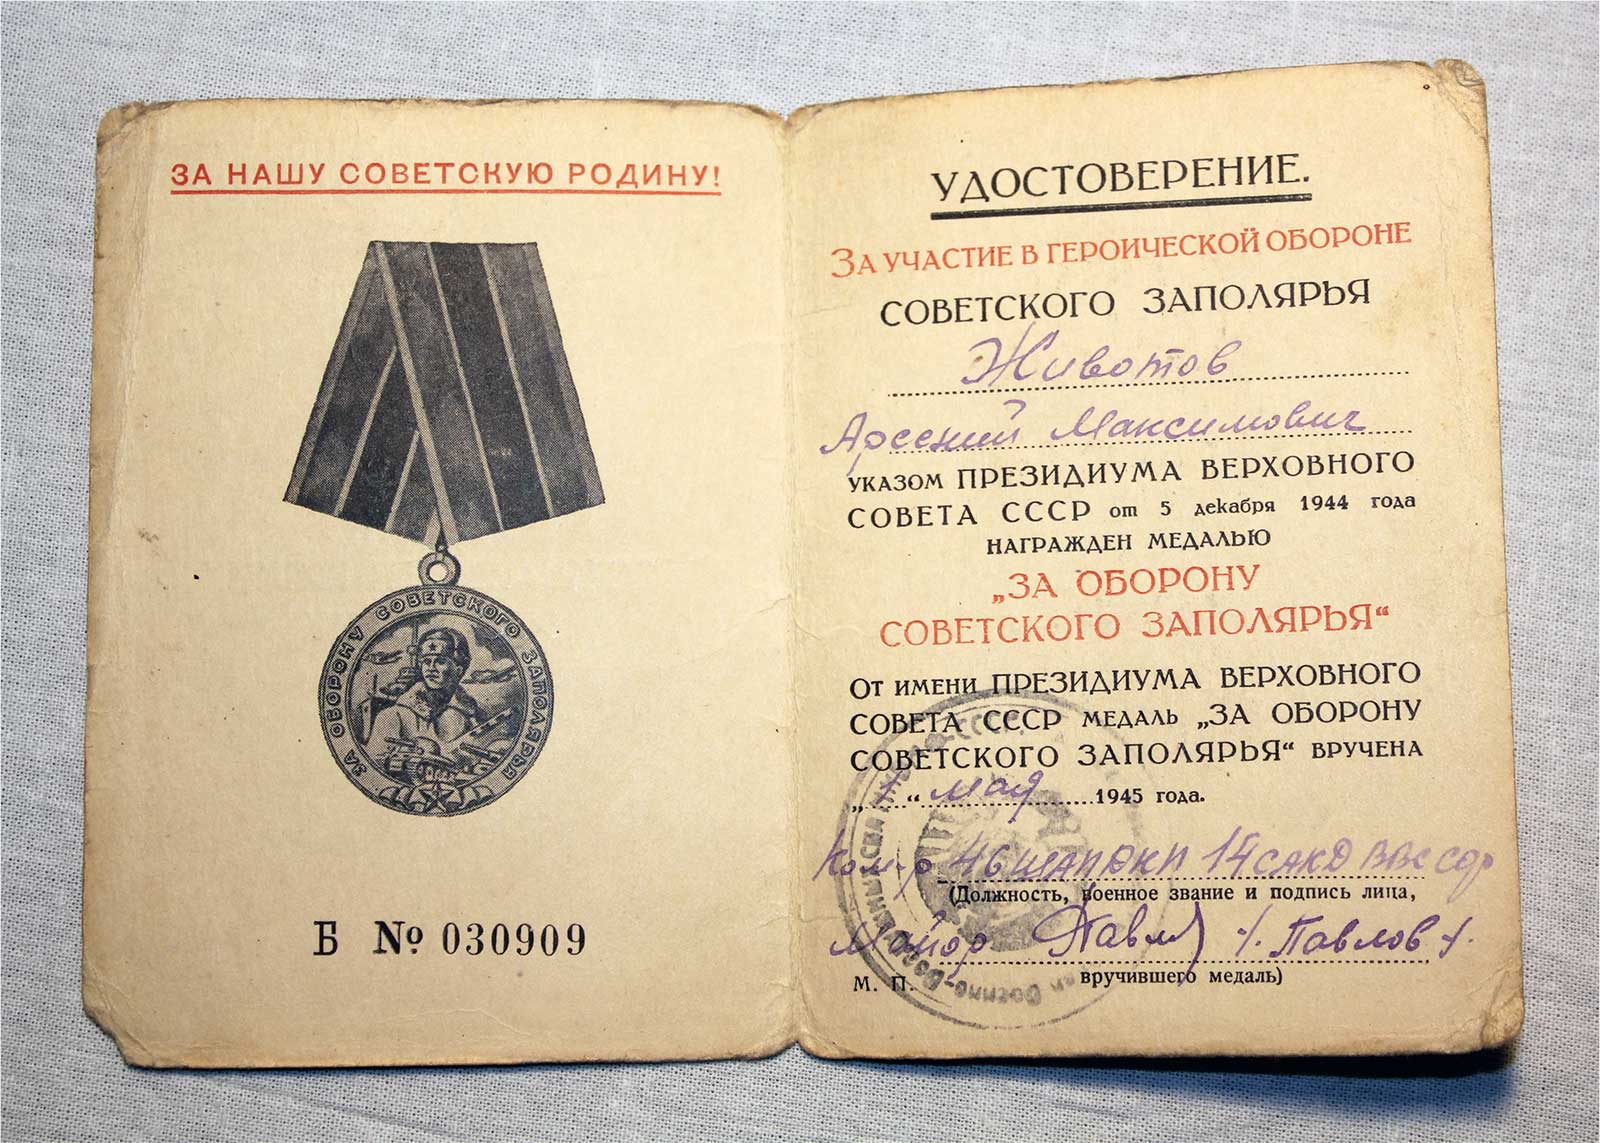 ЗА НАШУ СОВЕТСКУЮ РОДИНУ!
ЗА ОБОРОНУ СОВЕТСКОГО ЗАПОЛЯРЬЯ
Б № 030909
УДОСТОВЕРЕНИЕ.
ЗА УЧАСТИЕ В ГЕРОИЧЕСКОЙ ОБОРОНЕ
СОВЕТСКОГО ЗАПОЛЯРЬЯ
Животов
Арсений Максимович
УКАЗОМ ПРЕЗИДИУМА ВЕРХОВНОГО
СОВЕТА СССР от 5 декабря 1944 года
НАГРАЖДЕН МЕДАЛЬЮ
„ЗА ОБОРОНУ
СОВЕТСКОГО ЗАПОЛЯРЬЯ“
ОТ ИМЕНИ ПРЕЗИДИУМА ВЕРХОВНОГО
СОВЕТА СССР МЕДАЛЬ „ЗА ОБОРОНУ
СОВЕТСКОГО ЗАПОЛЯРЬЯ“ ВРУЧЕНА
„1“ мая 1945 года.
Ком-р 46 ШАП ЮКП 14 САКД ВВС СФ
(Должность, военное звание и подпись лица,
Майор Павлов /.Павлов/.
М. П. вручившего медаль)